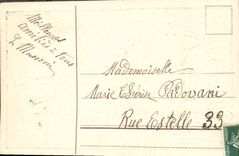 Meilleures
amitiés à tous
Mademoiselle
Marie Padovani
Rue Costelle 33